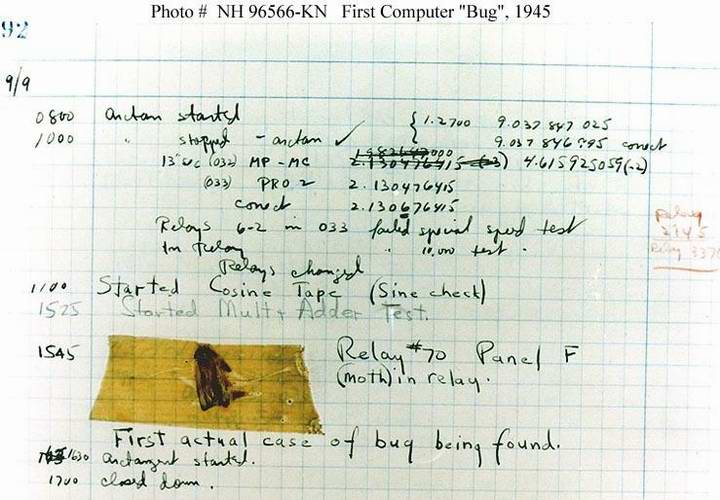 Photo # NH 96566-KN First Computer "Bug", 1945
92
9/9
0800 Antan started { 1.2700 9.037 847 025
1000 " stopped - antan ✓ 9.037 846 995 correct
13"uc (032) MP - MC 2.130476415 4.615925059(-2)
(033) PRO 2 2.130476415
correct 2.130676415
Relays 6-2 in 033 failed special speed test
In Relay " 10,000 test .
Relay
2145
Relay 3370
Relays changed
1100 Started Cosine Tape (Sine check)
1525 Started Mult + Adder Test.
1545 Relay #70 Panel F
(moth) in relay.
First actual case of bug being found.
1630 antangent started.
1700 closed down.